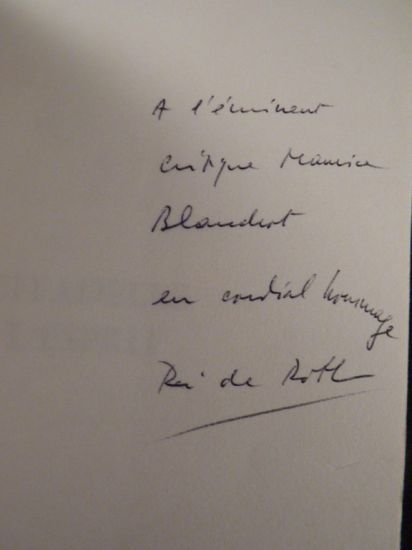 A l'éminent
critique Maurice
Blanchot
en cordial hommage
de Roth